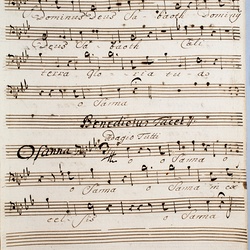 Dominus Deus Sabaoth Dominus
Deus Sabaoth Cæli
terra gloria tuas
o sanna
Benedictus Tacet
Adagio Tutti
Osanna
o o sanna
o sanna o sanna in ex
celsis o sanna